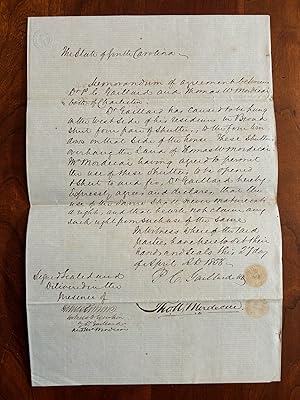 The State of South Carolina
Memorandum of agreement between
Dr P. C. Gaillard and Thomas W. Mordecai
both of Charleston
Dr Gaillard has caused to be hung
on the West side of his Residence in Broad
Street four pair of Shutters, to the four win
dows on that side of the house. These Shutters
overhang the Land of Thomas W. Mordecai
Mr Mordecai having agreed to permit
the use of these Shutters to be opened
& shut to and fro, Dr Gaillard hereby
expressly, agrees and declares, that the
use of the same shall never mature into
a right, and that he will not claim any
such right from such use of the same
In witness whereof the said
parties have hereto set their
hands and Seals this 27 day
of April A.D. 1858
P. C. Gaillard
Signed Sealed and
Delivered in the
Presence of
Thos W. Mordecai
Dr Gaillard
Mordecai